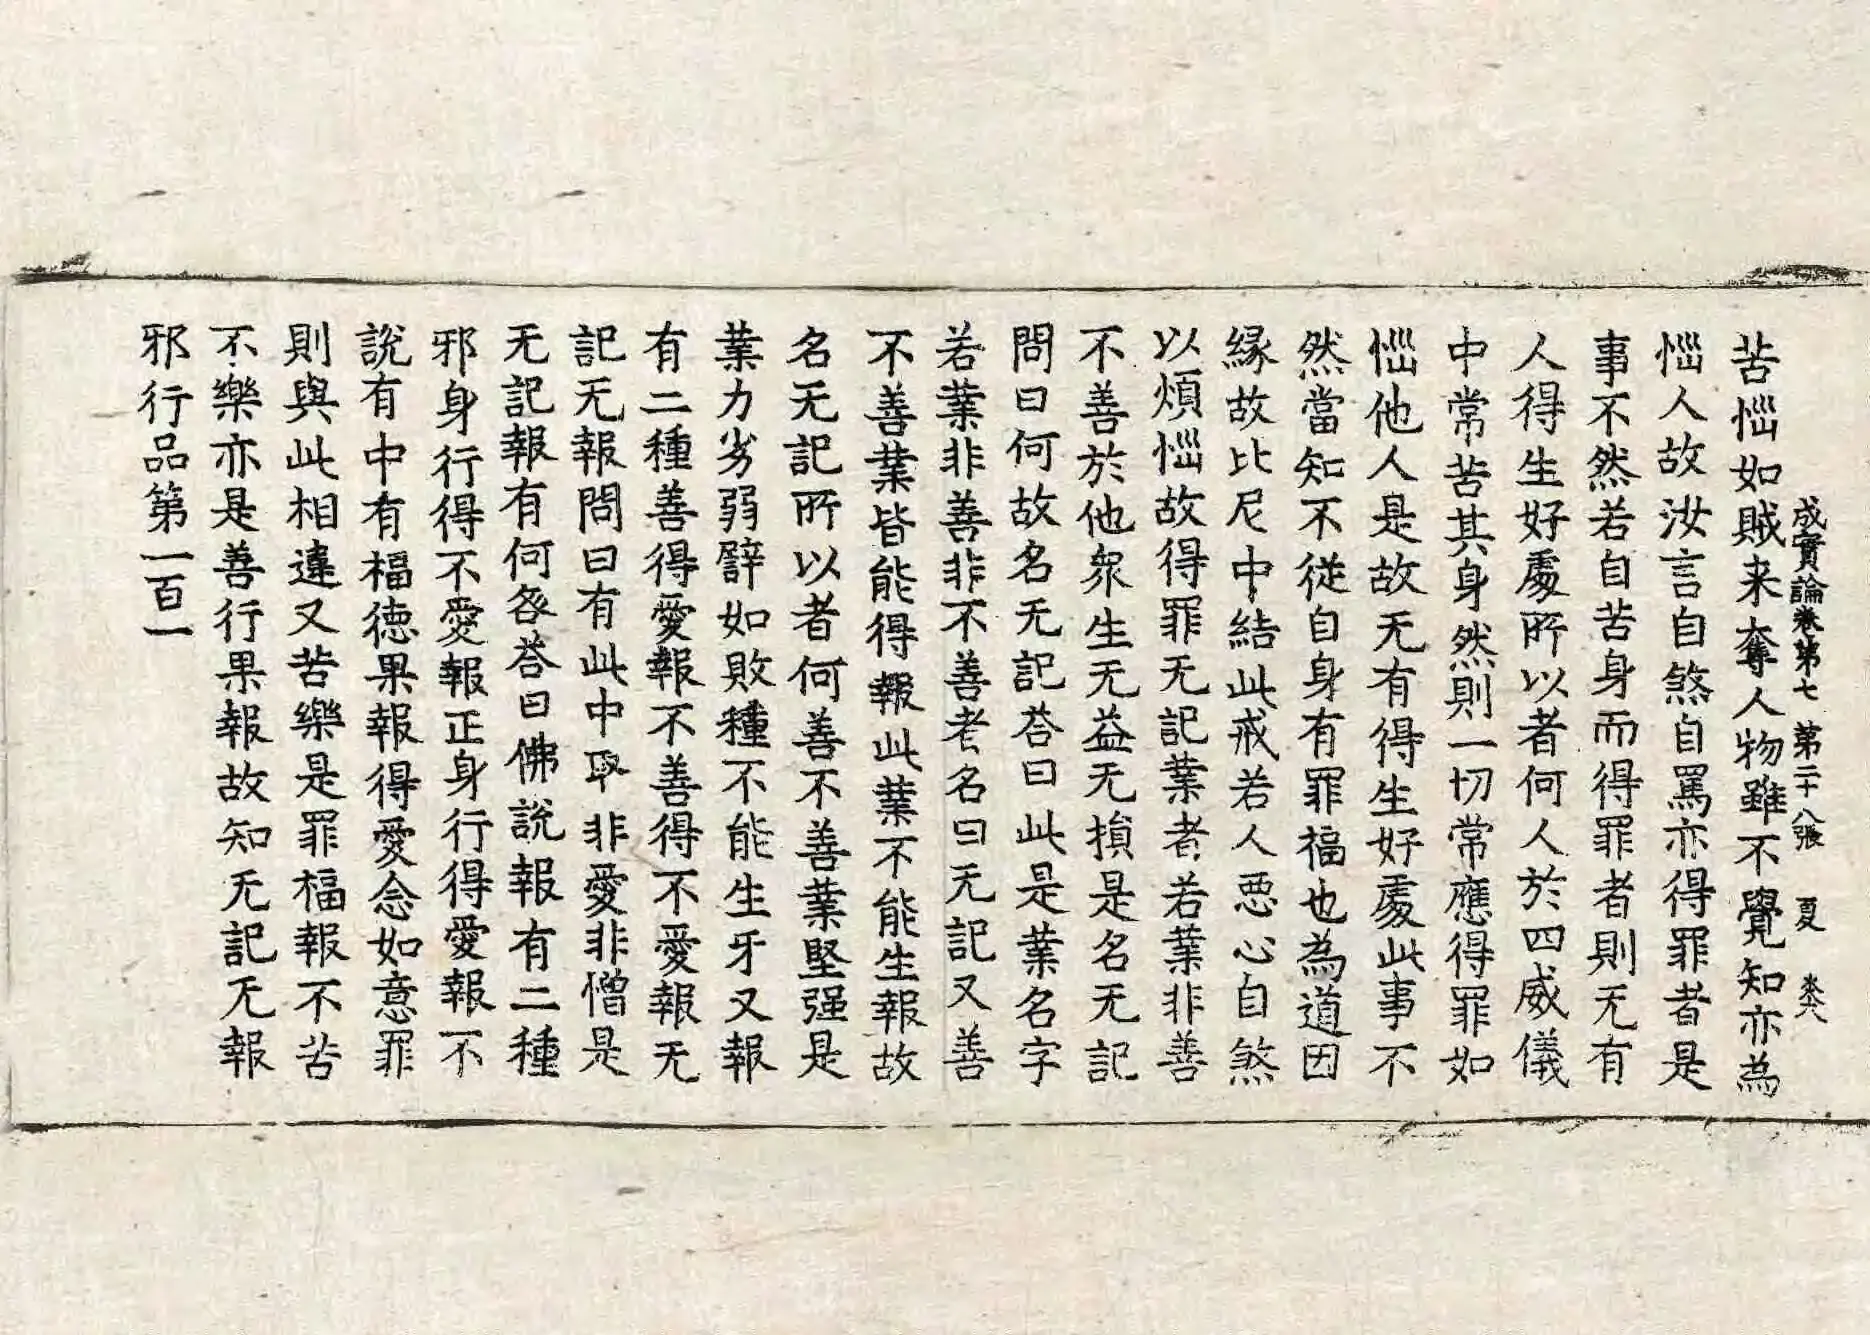 成實論卷第七 第二十八張 夏
苦惱如賊来奪人物雖不覺知亦為
惱人故汝言自煞自罵亦得罪者是
事不然若自苦身而得罪者則无有
人得生好處所以者何人於四威儀
中常苦其身然則一切常應得罪如
惱他人是故无有得生好處此事不
然當知不從自身有罪福也為道因
緣故比尼中結此戒若人惡心自煞
以煩惱故得罪无記業者若業非善
不善於他衆生无益无損是名无記
問曰何故名无記荅曰此是業名字
若業非善非不善者名曰无記又善
不善業皆能得報此業不能生報故
名无記所以者何善不善業堅强是
業力劣弱辟如敗種不能生牙又報
有二種善得愛報不善得不愛報无
記无報問曰有此中取非愛非憎是
无記報有何咎荅曰佛說報有二種
邪身行得不愛報正身行得愛報不
說有中有福德果報得愛念如意罪
則與此相違又苦樂是罪福報不苦
不樂亦是善行果報故知无記无報
邪行品第一百一